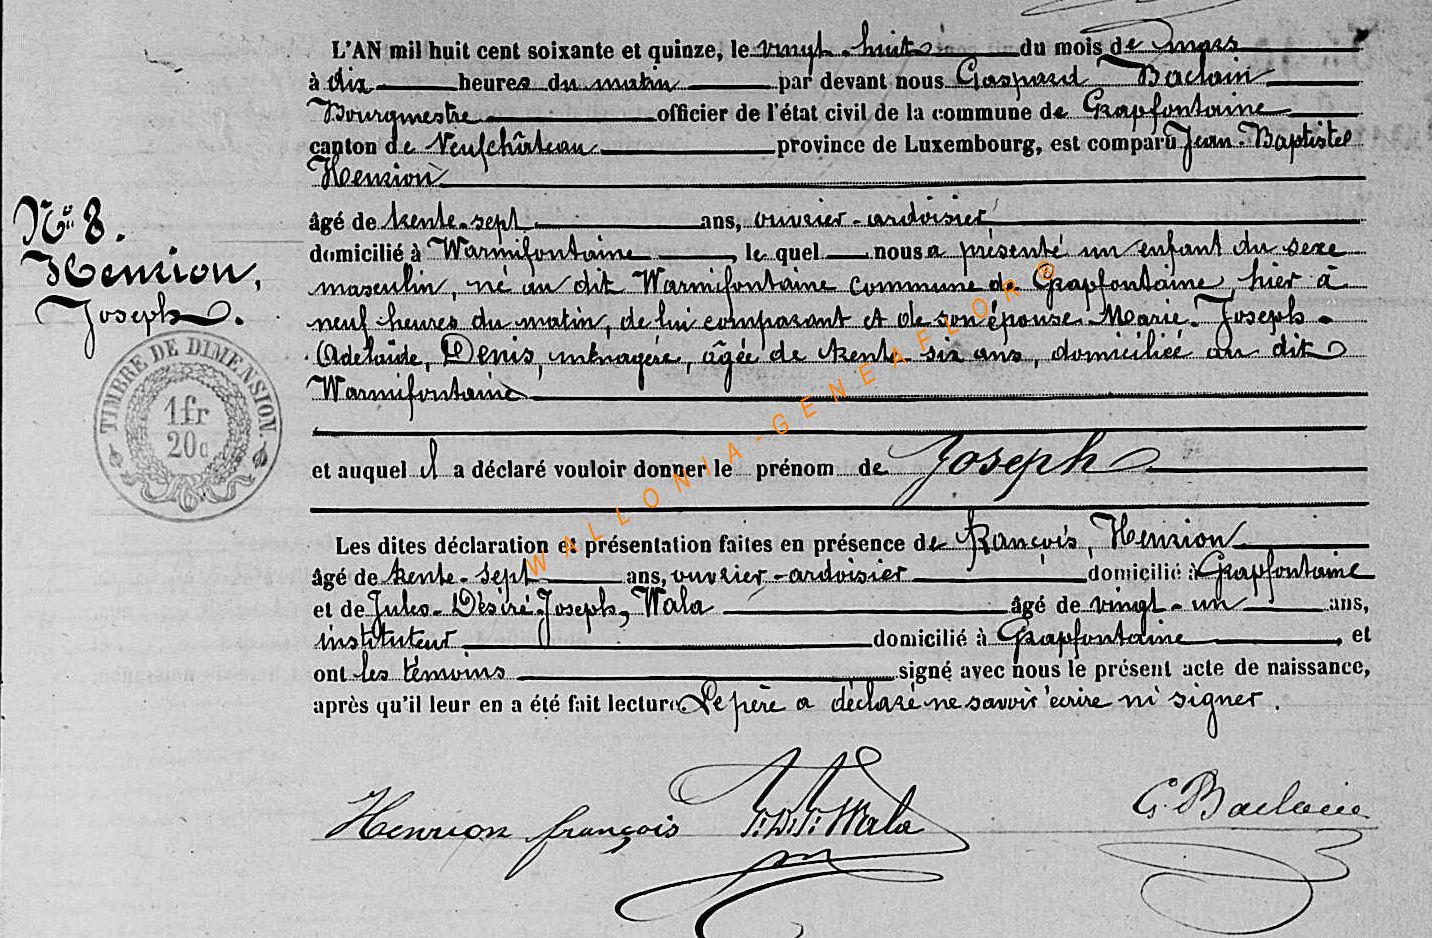 L'AN mil huit cent soixante et quinze, le vingt-huit du mois de mars
à dix heures du matin par devant nous Gaspard Baclain
Bourgmestre officier de l'état civil de la commune de Grapfontaine
canton de Neufchâteau province de Luxembourg, est comparu Jean-Baptiste
Henrion
N° 8.
Henrion,
Joseph.
âgé de trente-sept ans, ouvrier-ardoisier
domicilié à Warmifontaine, le quel nous a présenté un enfant du sexe
masculin, né au dit Warmifontaine commune de Grapfontaine, hier à
neuf heures du matin, de lui comparant et de son épouse Marie-Joseph-
Adelaïde, Denis, ménagère, âgée de trente-six ans, domiciliée au dit
Warmifontaine
TIMBRE DE DIMENSION.
1fr
20c
et auquel il a déclaré vouloir donner le prénom de Joseph
Les dites déclaration et présentation faites en présence de François, Henrion
âgé de trente-sept ans, ouvrier-ardoisier domicilié à Grapfontaine
et de Jules-Désiré-Joseph, Wala âgé de vingt-un ans,
instituteur domicilié à Grapfontaine, et
ont les témoins signé avec nous le présent acte de naissance,
après qu'il leur en a été fait lecture Le père a déclaré ne savoir écrire ni signer.
Henrion françois J.D.J. Wala G. Baclain
WALLONIA-GENEAFLOR ©